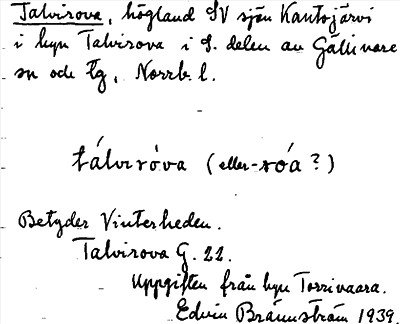 Talvirova, högland SV sjön Kantojärvi
i byn Talvirova i S. delen av Gällivare
sn och tg, Norrb. l.
tálviróva (eller -róa?)
Betyder Vinterheden.
Talvirova G. 22.
Uppgiften från byn Torrivaara.
Edvin Brännström 1939.